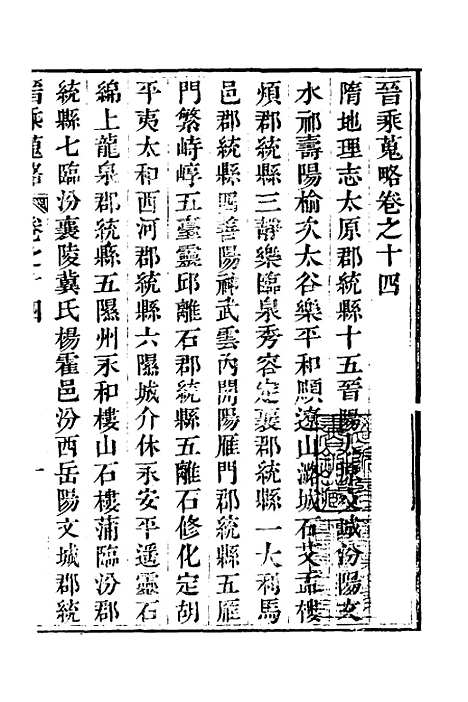 晉乘蒐略卷之十四
隋地理志太原郡統縣十五晉陽太原文城汾陽文
水祁壽陽榆次太谷樂平和順遼山潞城石艾盂樓
煩郡統縣三靜樂臨泉秀容定襄郡統縣一大利馬
邑郡統縣四善陽神武雲內開陽雁門郡統縣五雁
門繁峙崞五臺靈邱離石郡統縣五離石修化定胡
平夷太和西河郡統縣六隰城介休永安平遥靈石
綿上龍泉郡統縣五隰州永和樓山石樓蒲臨汾郡
統縣七臨汾襄陵冀氏楊霍邑汾西岳陽文城郡統
晉乘蒐略 卷之十四 一